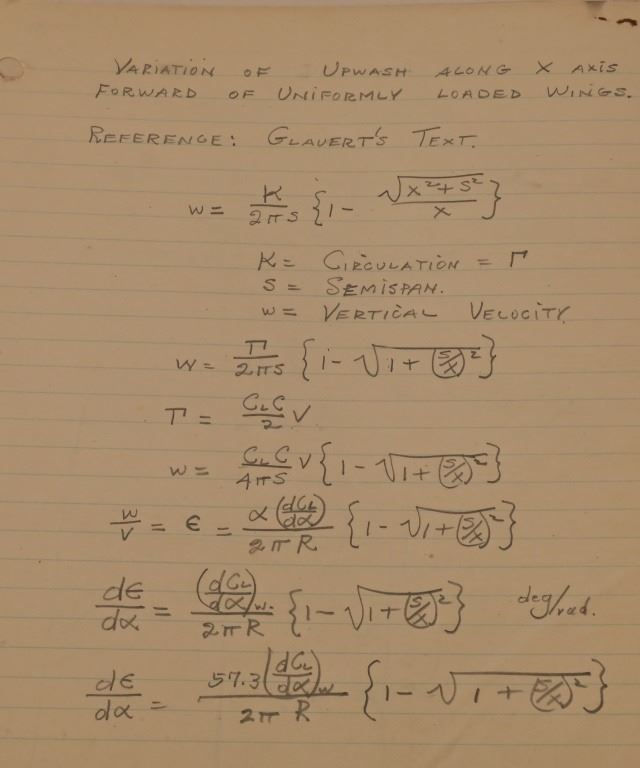 VARIATION OF UPWASH ALONG X AXIS
FORWARD OF UNIFORMLY LOADED WINGS.
REFERENCE: GLAUERT'S TEXT.
w = K/2πs {1 - √(x²+s²)/x}
K = CIRCULATION = Γ
S = SEMISPAN.
w = VERTICAL VELOCITY
w = Γ/2πs {1 - √(1 + (s/x)²)}
Γ = C_L C/2 V
w = C_L C/4πs V {1 - √(1 + (s/x)²)}
w/V = ε = α(dC_L/dα)/2πR {1 - √(1 + (s/x)²)}
dε/dα = (dC_L/dα)_w./2πR {1 - √(1 + (s/x)²)} deg/rad.
dε/dα = 57.3(dC_L/dα)_w/2π R {1 - √(1 + (s/x)²)}